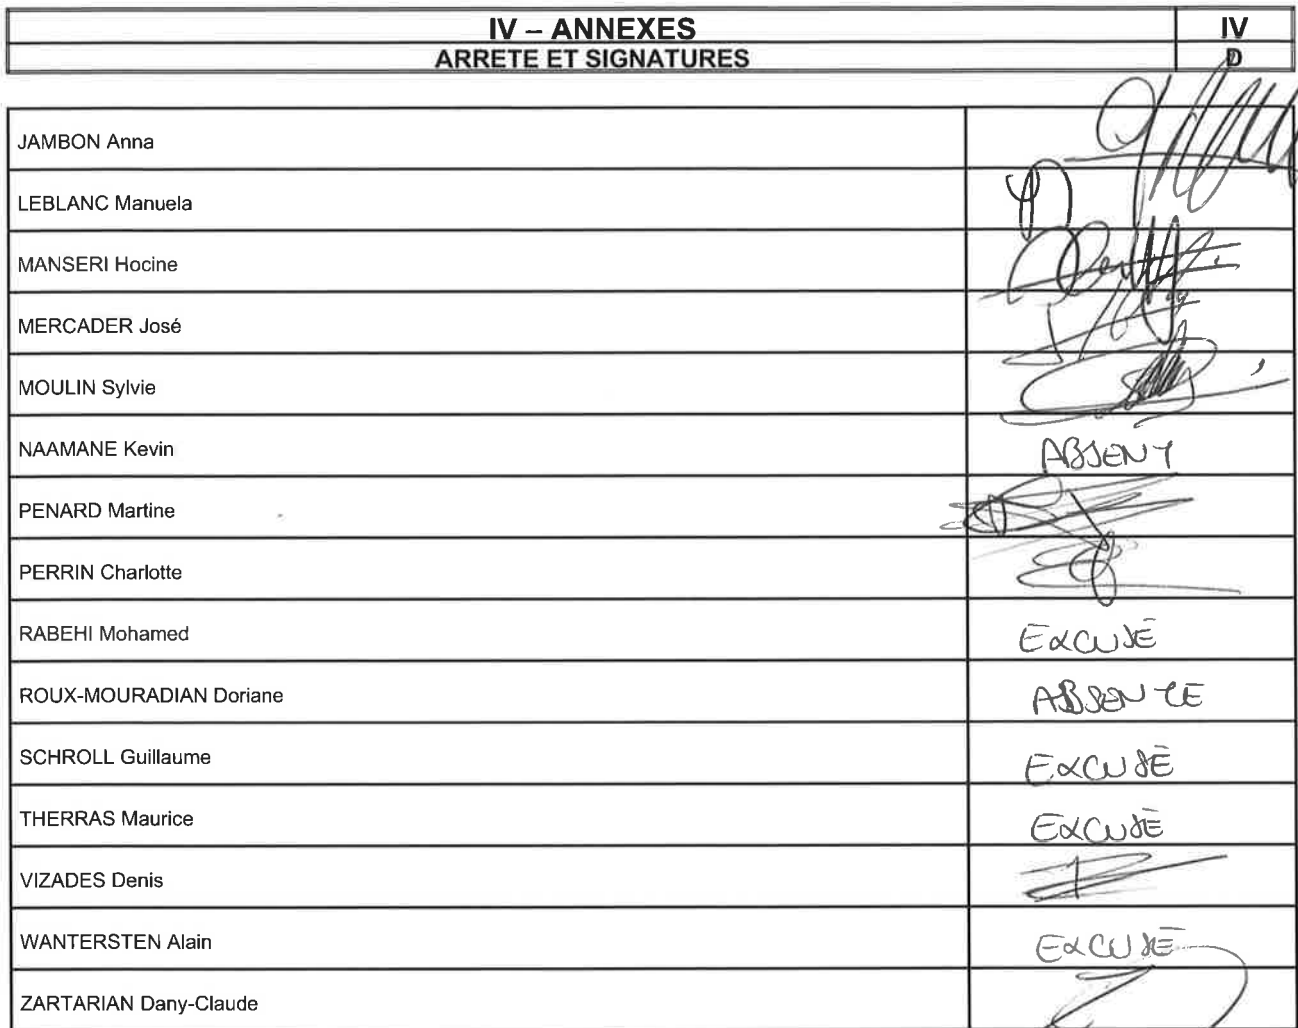 IV – ANNEXES
IV
ARRETE ET SIGNATURES
D
JAMBON Anna
LEBLANC Manuela
MANSERI Hocine
MERCADER José
MOULIN Sylvie
NAAMANE Kevin
ABSENT
PENARD Martine
PERRIN Charlotte
RABEHI Mohamed
EXCUSÉ
ROUX-MOURADIAN Doriane
ABSENTE
SCHROLL Guillaume
EXCUSÉ
THERRAS Maurice
EXCUSÉ
VIZADES Denis
WANTERSTEN Alain
EXCUSÉ
ZARTARIAN Dany-Claude